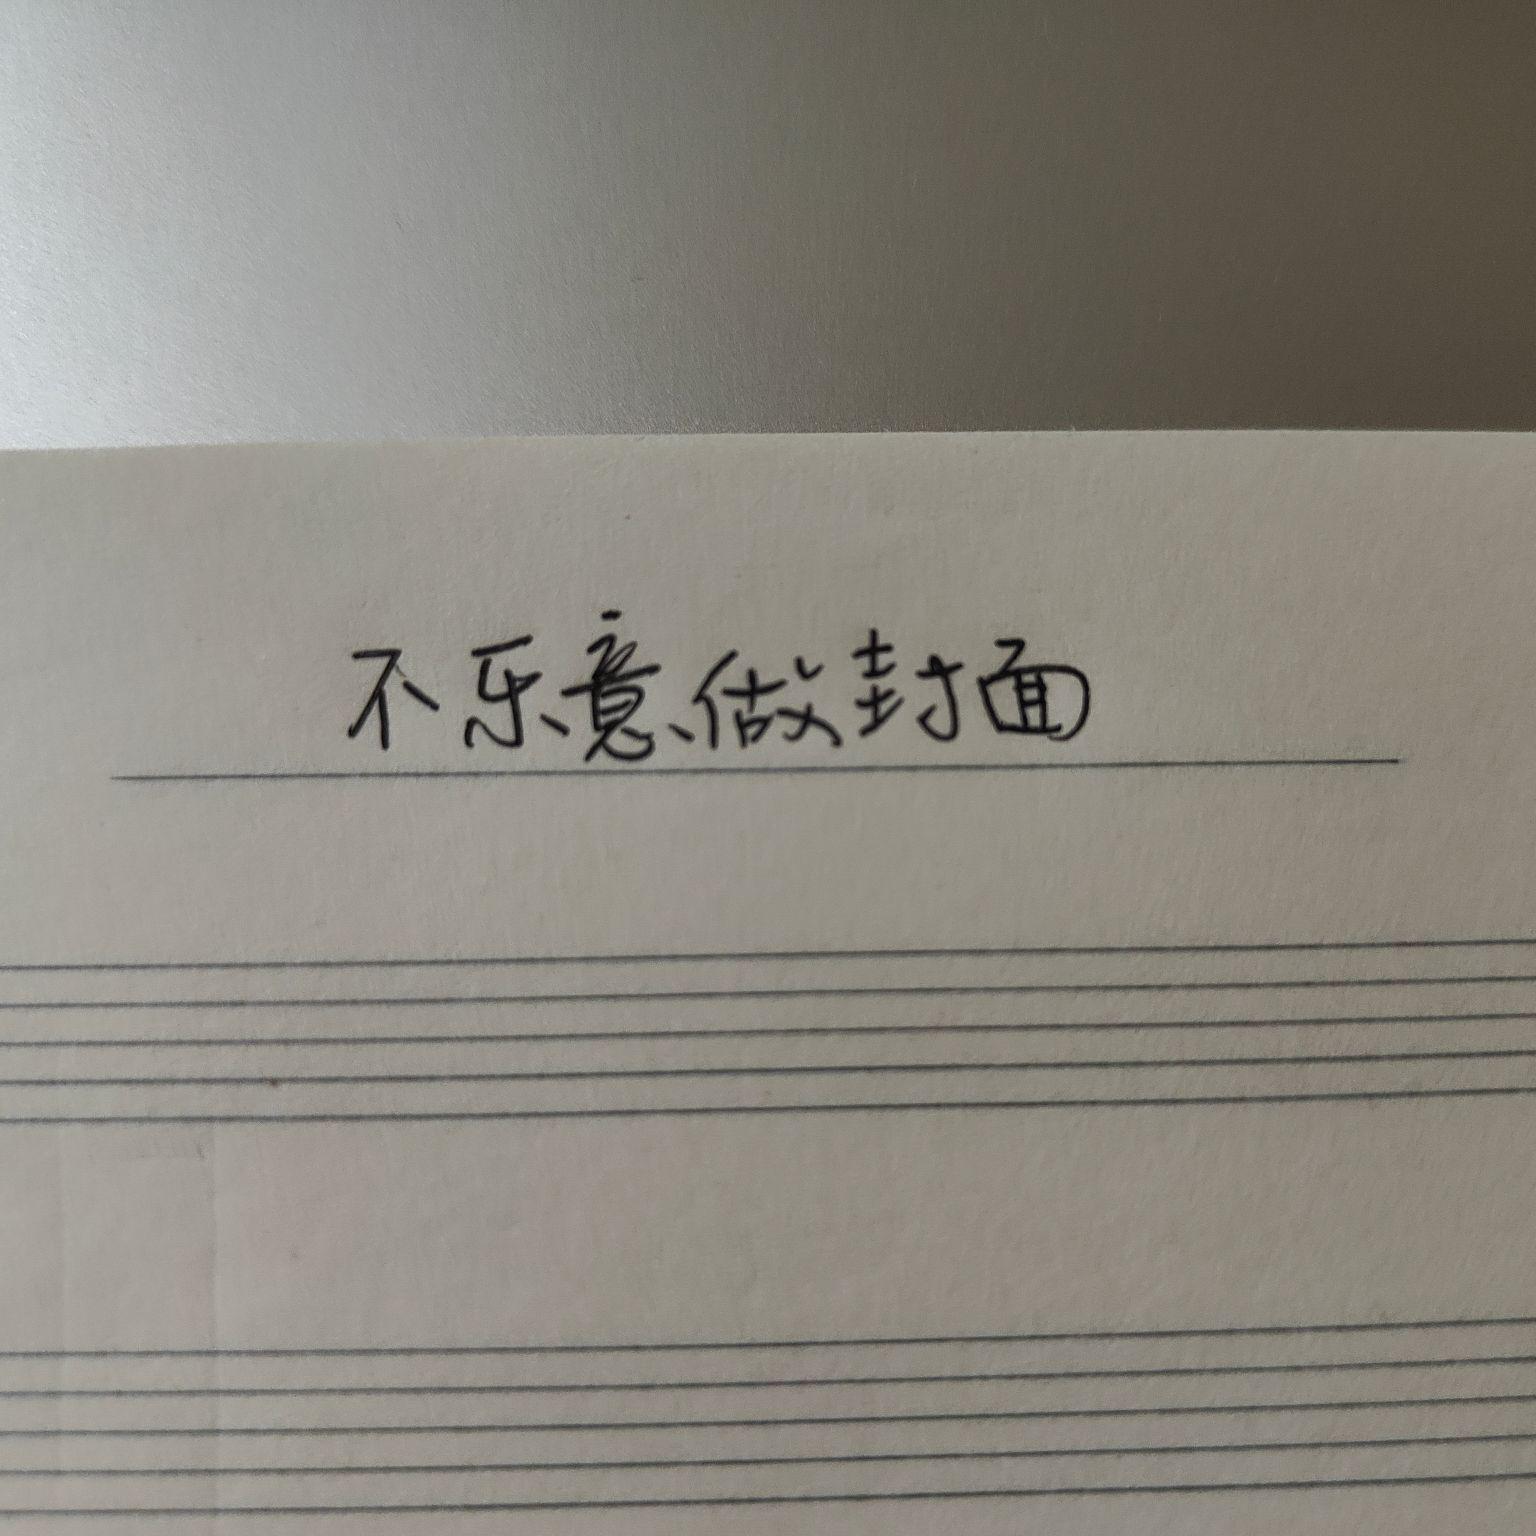 不乐意做封面